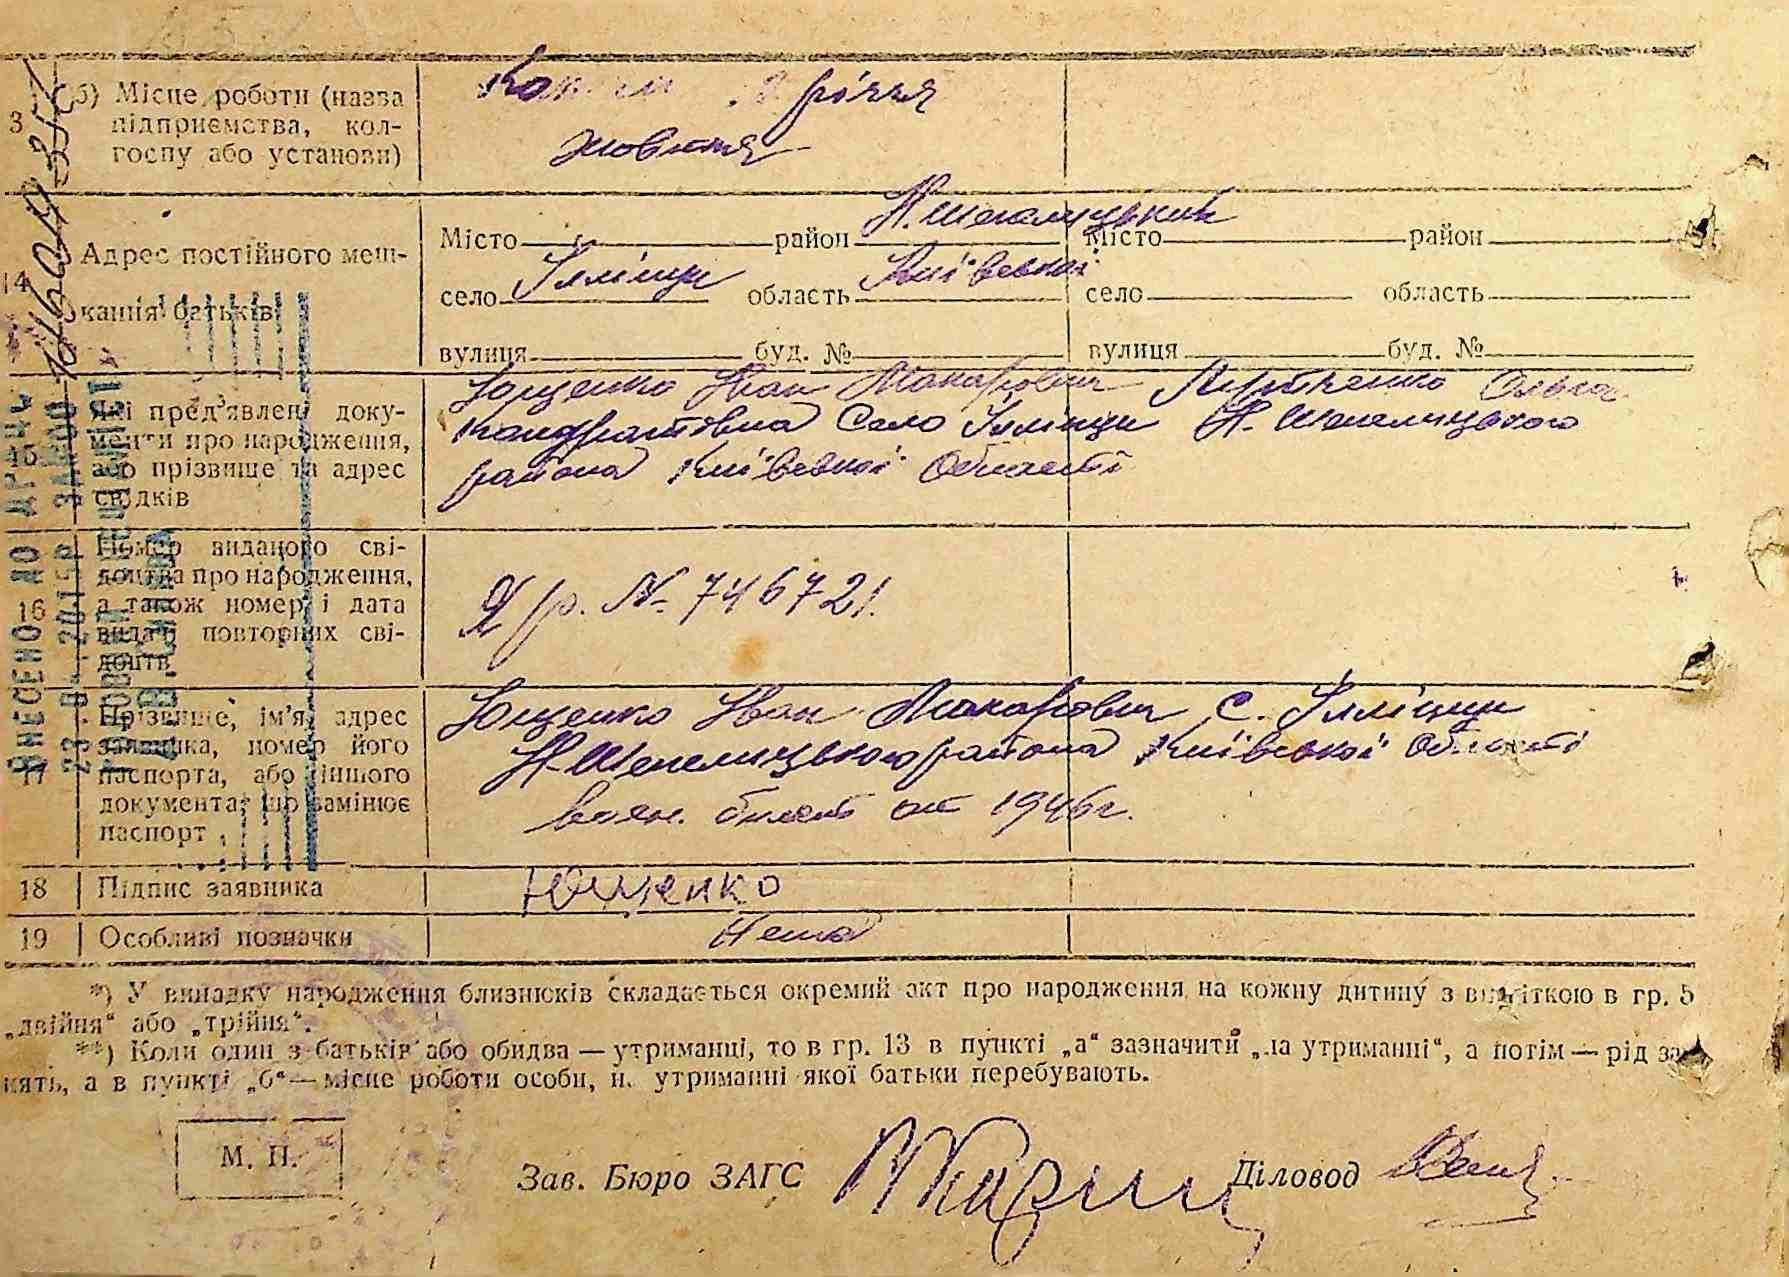 б) Місце роботи (назва
3 підприємства, кол-
госпу або установи)
річчя
жовтня
14 Адрес постійного меш-
кання батьків
Місто район Н.Шепелицький
село Іллінци область Київської
вулиця буд. №
Місто район
село область
вулиця буд. №
15 Які пред'явлені доку-
менти про народження,
або прізвище та адрес
свідків
Ющенко Іван Макарович Ольга
Кондратівна Село Іллінци Н. Шепелицького
района Київської Області
16 Номер виданого сві-
доцтва про народження,
а також номер і дата
видачі повторних сві-
доцтв
№ 746721.
17 Прізвище, ім'я, адрес
заявника, номер його
паспорта, або іншого
документа, що замінює
паспорт
Ющенко Іван Макарович С. Іллінци
Н-Шепелицького района Київської Області
воен. билет от 1946г.
18 Підпис заявника Ющенко
19 Особливі позначки Нема
*) У випадку народження близнюків складається окремий акт про народження на кожну дитину з відміткою в гр. 5
„двійня“ або „трійня“.
**) Коли один з батьків або обидва — утриманці, то в гр. 13 в пункті „а“ зазначити „на утриманні“, а потім — рід за-
нять, а в пункті „б“ — місце роботи особи, н. утриманні якої батьки перебувають.
М. П.
Зав. Бюро ЗАГС Діловод
ВНЕСЕНО ДО ДРАЦС